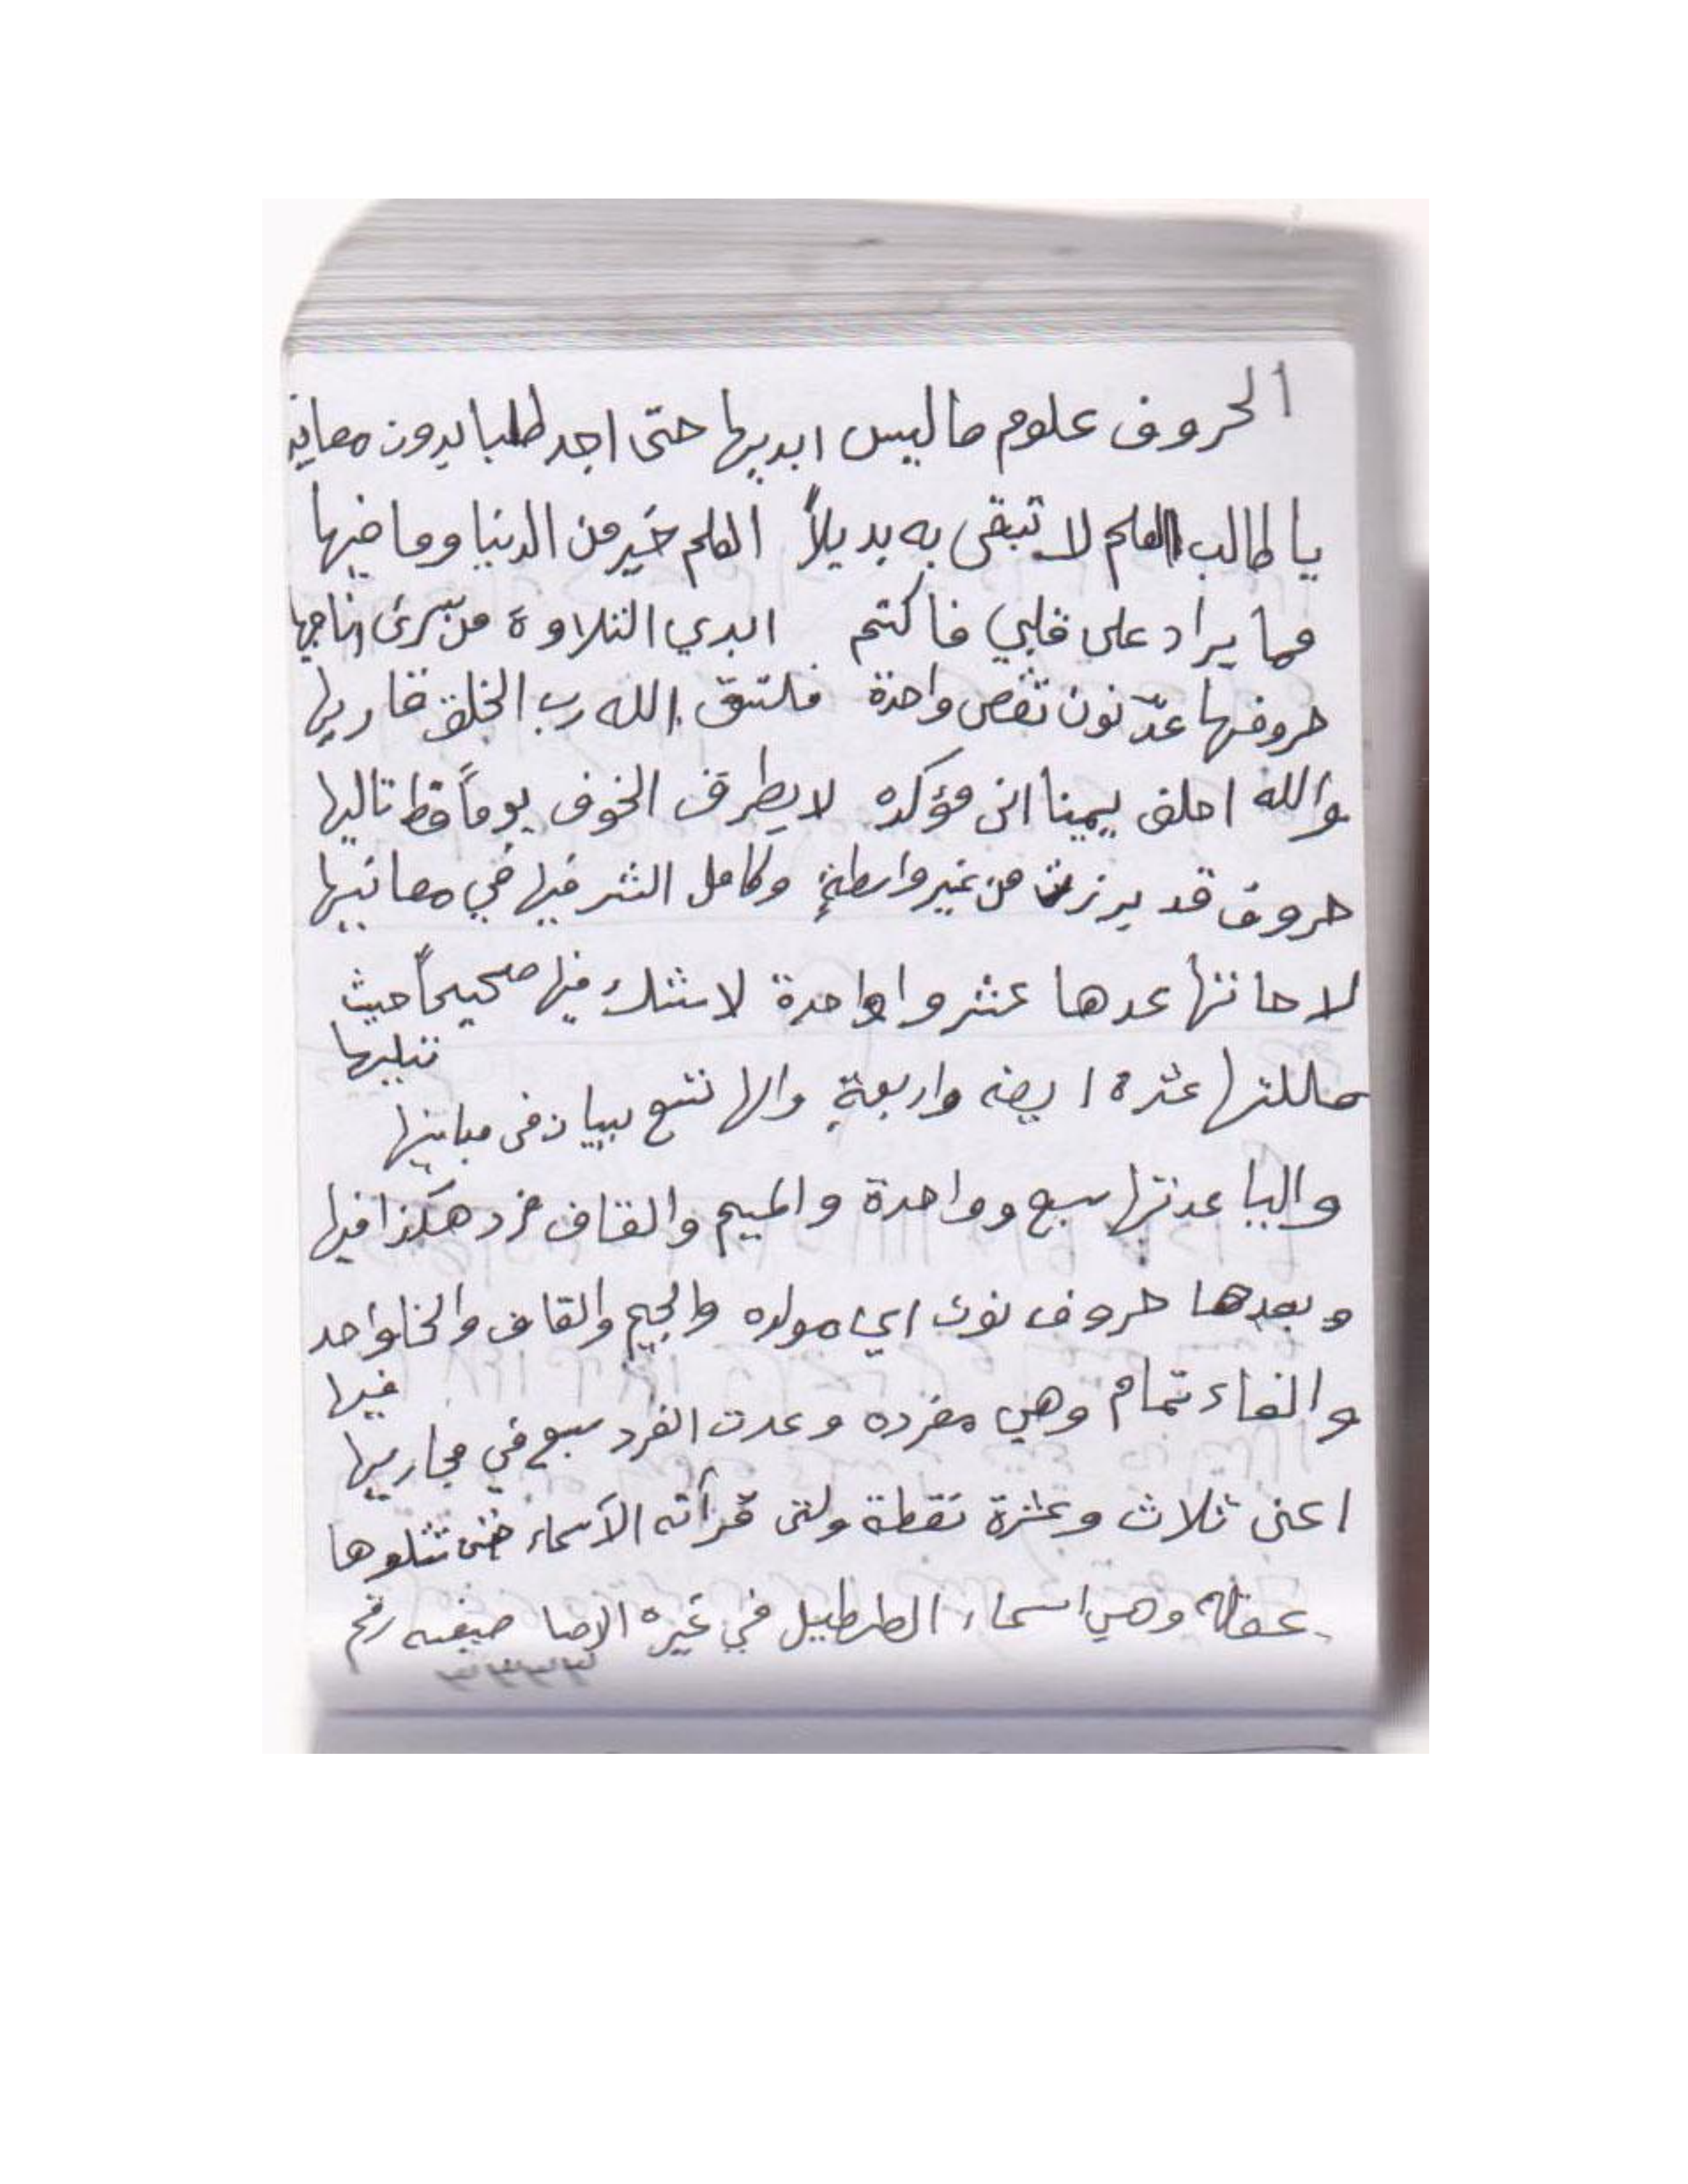 الحروف علوم ماليس ابديها حتى اجد طلبا يدرون معانيه
يا طالب العلم لا تبقى به بديلاً العلم خير من الدنيا وما فيها
مما يراد على قلبي فاكتم ابدي التلاوة من سرى
حروفها عدّ نون تنقص واحدة فلتتق الله رب الخلق قاريها
والله احلف يمينا انى مؤكده لا يطرق الخوف يوماً قط تاليها
حروف قد برزت من غير واسطةٍ وكامل الشر فيها في معانيها
لا ماتها عدها عشر واواحدة لاشك فيها صحيحاً حيث
تتليها
عشره ايضه واربعةٍ والها تتبع ببيان فى مبانيها
واليا عدتها سبع وواحدة والميم والقاف فرد هكذا فيها
وبعدها حروف نون اي مولده والجيم والقاف والخا واحد
فيها
والفاء تمام وهي مفرده وعدت الفرد سبع في مجاريها
اعنى ثلاث وعشرة نقطة ولتى قرأته الأسماء تتلوها
وهي اسماء الطهطيل في غيره رقم
٣٣٣٣